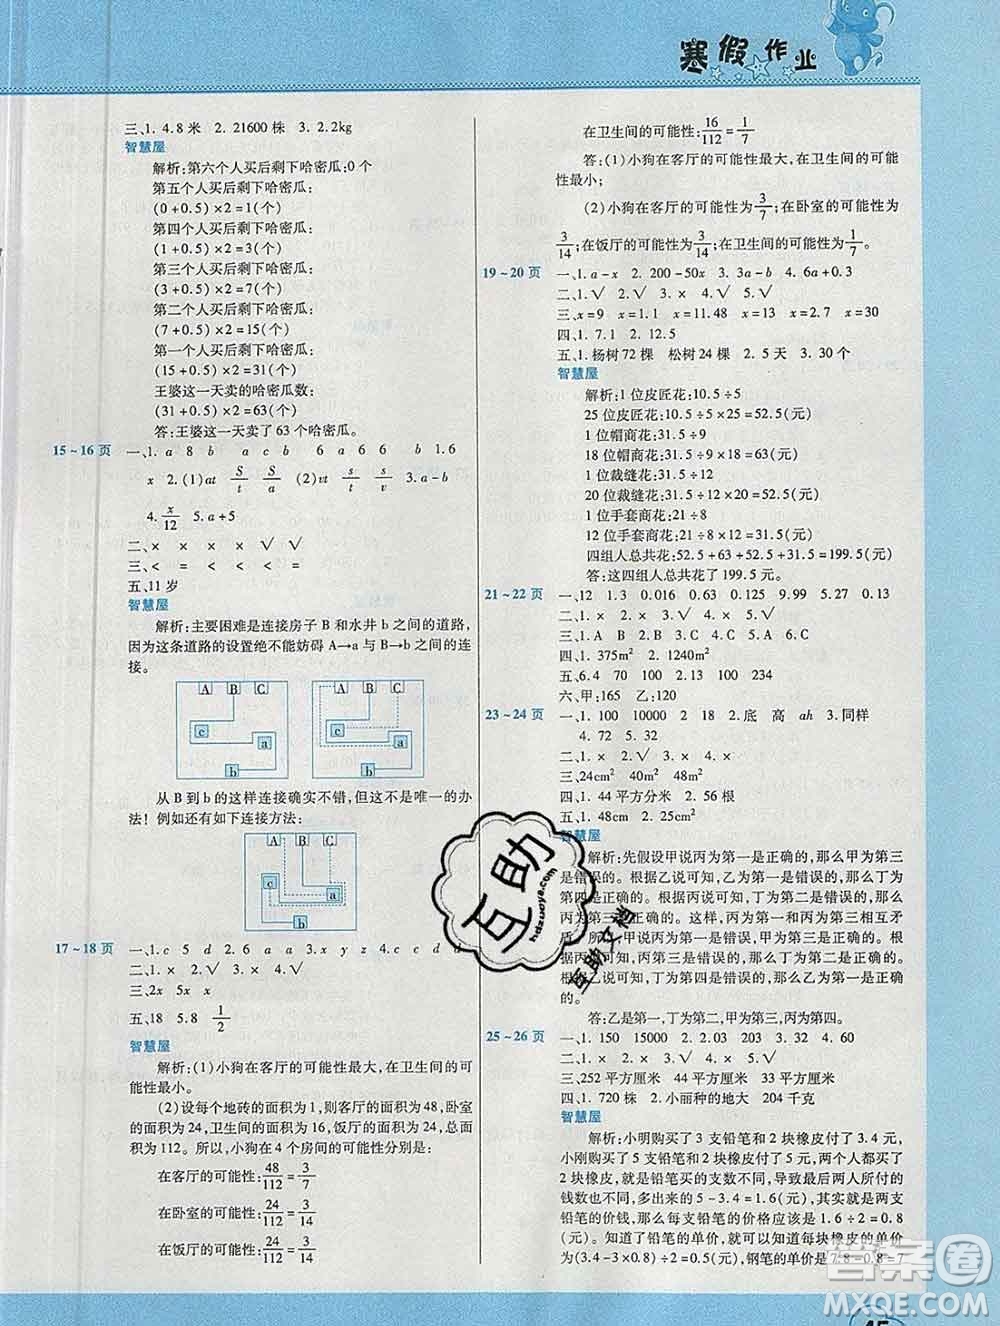 寒假作业
三、1. 4.8米 2. 21600株 3. 2.2kg
智慧屋
解析:第六个人买后剩下哈密瓜:0个
第五个人买后剩下哈密瓜:
(0+0.5)×2=1(个)
第四个人买后剩下哈密瓜:
(1+0.5)×2=3(个)
第三个人买后剩下哈密瓜:
(3+0.5)×2=7(个)
第二个人买后剩下哈密瓜:
(7+0.5)×2=15(个)
第一个人买后剩下哈密瓜:
(15+0.5)×2=31(个)
王婆这一天卖的哈密瓜数:
(31+0.5)×2=63(个)
答:王婆这一天卖了63个哈密瓜。
15~16页 一、1. a 8 b a c b c 6 a 6 6 b 1.6
x 2.(1)at S/t S/a (2)vt s/t s/v 3. a-b
4. x/12 5. a+5
二、× × × × √ √
三、< < < < < =
五、11岁
智慧屋
解析:主要困难是连接房子B和水井b之间的道路,
因为这条道路的设置绝不能妨碍A→a与B→之间的连
接。
A B C
c
a
b
A B C
c
a
b
从B到b的这样连接确实不错,但这不是唯一的办
法!例如还有如下连接方法:
A B C
c
a
b
17~18页 一、1. c 5 d 2. 6 a a 3. x y z 4. c c d d
二、1. √ 2. √ 3. × 4. ×
三、2x 5x x
五、18 5.8 1/2
智慧屋
解析:(1)小狗在客厅的可能性最大,在卫生间的可
能性最小。
(2)设每个地砖的面积为1,则客厅的面积为48,卧室
的面积为24,卫生间的面积为16,饭厅的面积为24,总面积为
112。所以,小狗在4个房间的可能性分别是:
在客厅的可能性:48/112=3/7
在卧室的可能性:24/112=3/14
在饭厅的可能性:24/112=3/14
在卫生间的可能性:16/112=1/7
答:(1)小狗在客厅的可能性最大,在卫生间的可能
性最小;
(2)小狗在客厅的可能性为3/7;在卧室的可能性为
3/14;在饭厅的可能性为3/14;在卫生间的可能性为1/7。
19~20页 一、1. a-x 2. 200-50x 3. 3a-b 4. 6a+0.3
二、1. √ 2. √ 3. √ 4. × 5. √
三、x=9 x=1 x=11.48 x=13 x=2.7 x=30
四、1. 7.1 2. 12.5
五、1. 杨树72棵 松树24棵 2. 5天 3. 30个
智慧屋
解析:1位皮匠花:10.5÷5
25位皮匠花:10.5÷5×25=52.5(元)
1位帽商花:31.5÷9
18位帽商花:31.5÷9×18=63(元)
1位裁缝花:31.5÷12
20位裁缝花:31.5÷12×20=52.5(元)
1位手套商花:21÷8
12位手套商花:21÷8×12=31.5(元)
四组人总共花:52.5+63+52.5+31.5=199.5(元)
答:这四组人总共花了199.5元。
21~22页 一、12 1.3 0.016 0.63 0.125 0.99 5.02 0.13
二、1. × 2. × 3. × 4. √ 5. √
四、1. 375m² 2. 1240m²
五、6.4 70 100 2. 0.13 100 4. 23
六、甲:165 乙:120
23~24页 一、1. 100 10000 2 18 2. 底 高 ah 3. 同样
4. 72 5. 32
二、1. × 2. √ 3. × 4. ×
三、24cm² 40m² 48m²
四、1. 44平方分米 2. 56根
五、1. 48cm 2. 9cm
智慧屋
解析:先假设甲说丙为第一是正确的,那么甲为第三
是错误的。根据乙说可知,乙为第一是错误的,那么丁为
第四是正确的。根据丙说可知,丁为第二是错误的,那么
丙为第三是正确的。这样,丙为第一和丙为第三相互矛
盾。所以甲说的丙为第一是错误,甲为第三是正确的。根
据丙说可知,丙为第三是错误的,那么丁为第二是正确的。
根据乙说可知,丁为第四是错误的,那么乙为第一是正确
的。
答:乙是第一,丁为第二,甲为第三,丙为第四。
25~26页 一、1. 150 15000 2. 2.03 203 3. 32 4. 60
二、1. × 2. √ 3. × 4. √
三、252平方厘米 75平方厘米 33平方厘米
四、1. 720株 2. 小丽种的地大 204千克
智慧屋
解析:小明购买了3支铅笔和2块橡皮付了3.4元,
小刚购买了5支铅笔和2块橡皮付了5元,那么两人除
购买的铅笔的支数不同,导致最后两人所付的
钱数也不同,多出来的5-3.4=1.6(元),其实就是两支
铅笔的价钱,那么每支铅笔的价格应该是1.6÷2=0.8
(元)。知道了铅笔的单价,就可以知道每块橡皮的单价
为(3.4-3×0.8)÷2=0.5(元),钢笔的单价是7.8-0.8=7
互助
hdzuoye.com
互助文档
答案圈
MXQE.COM
45